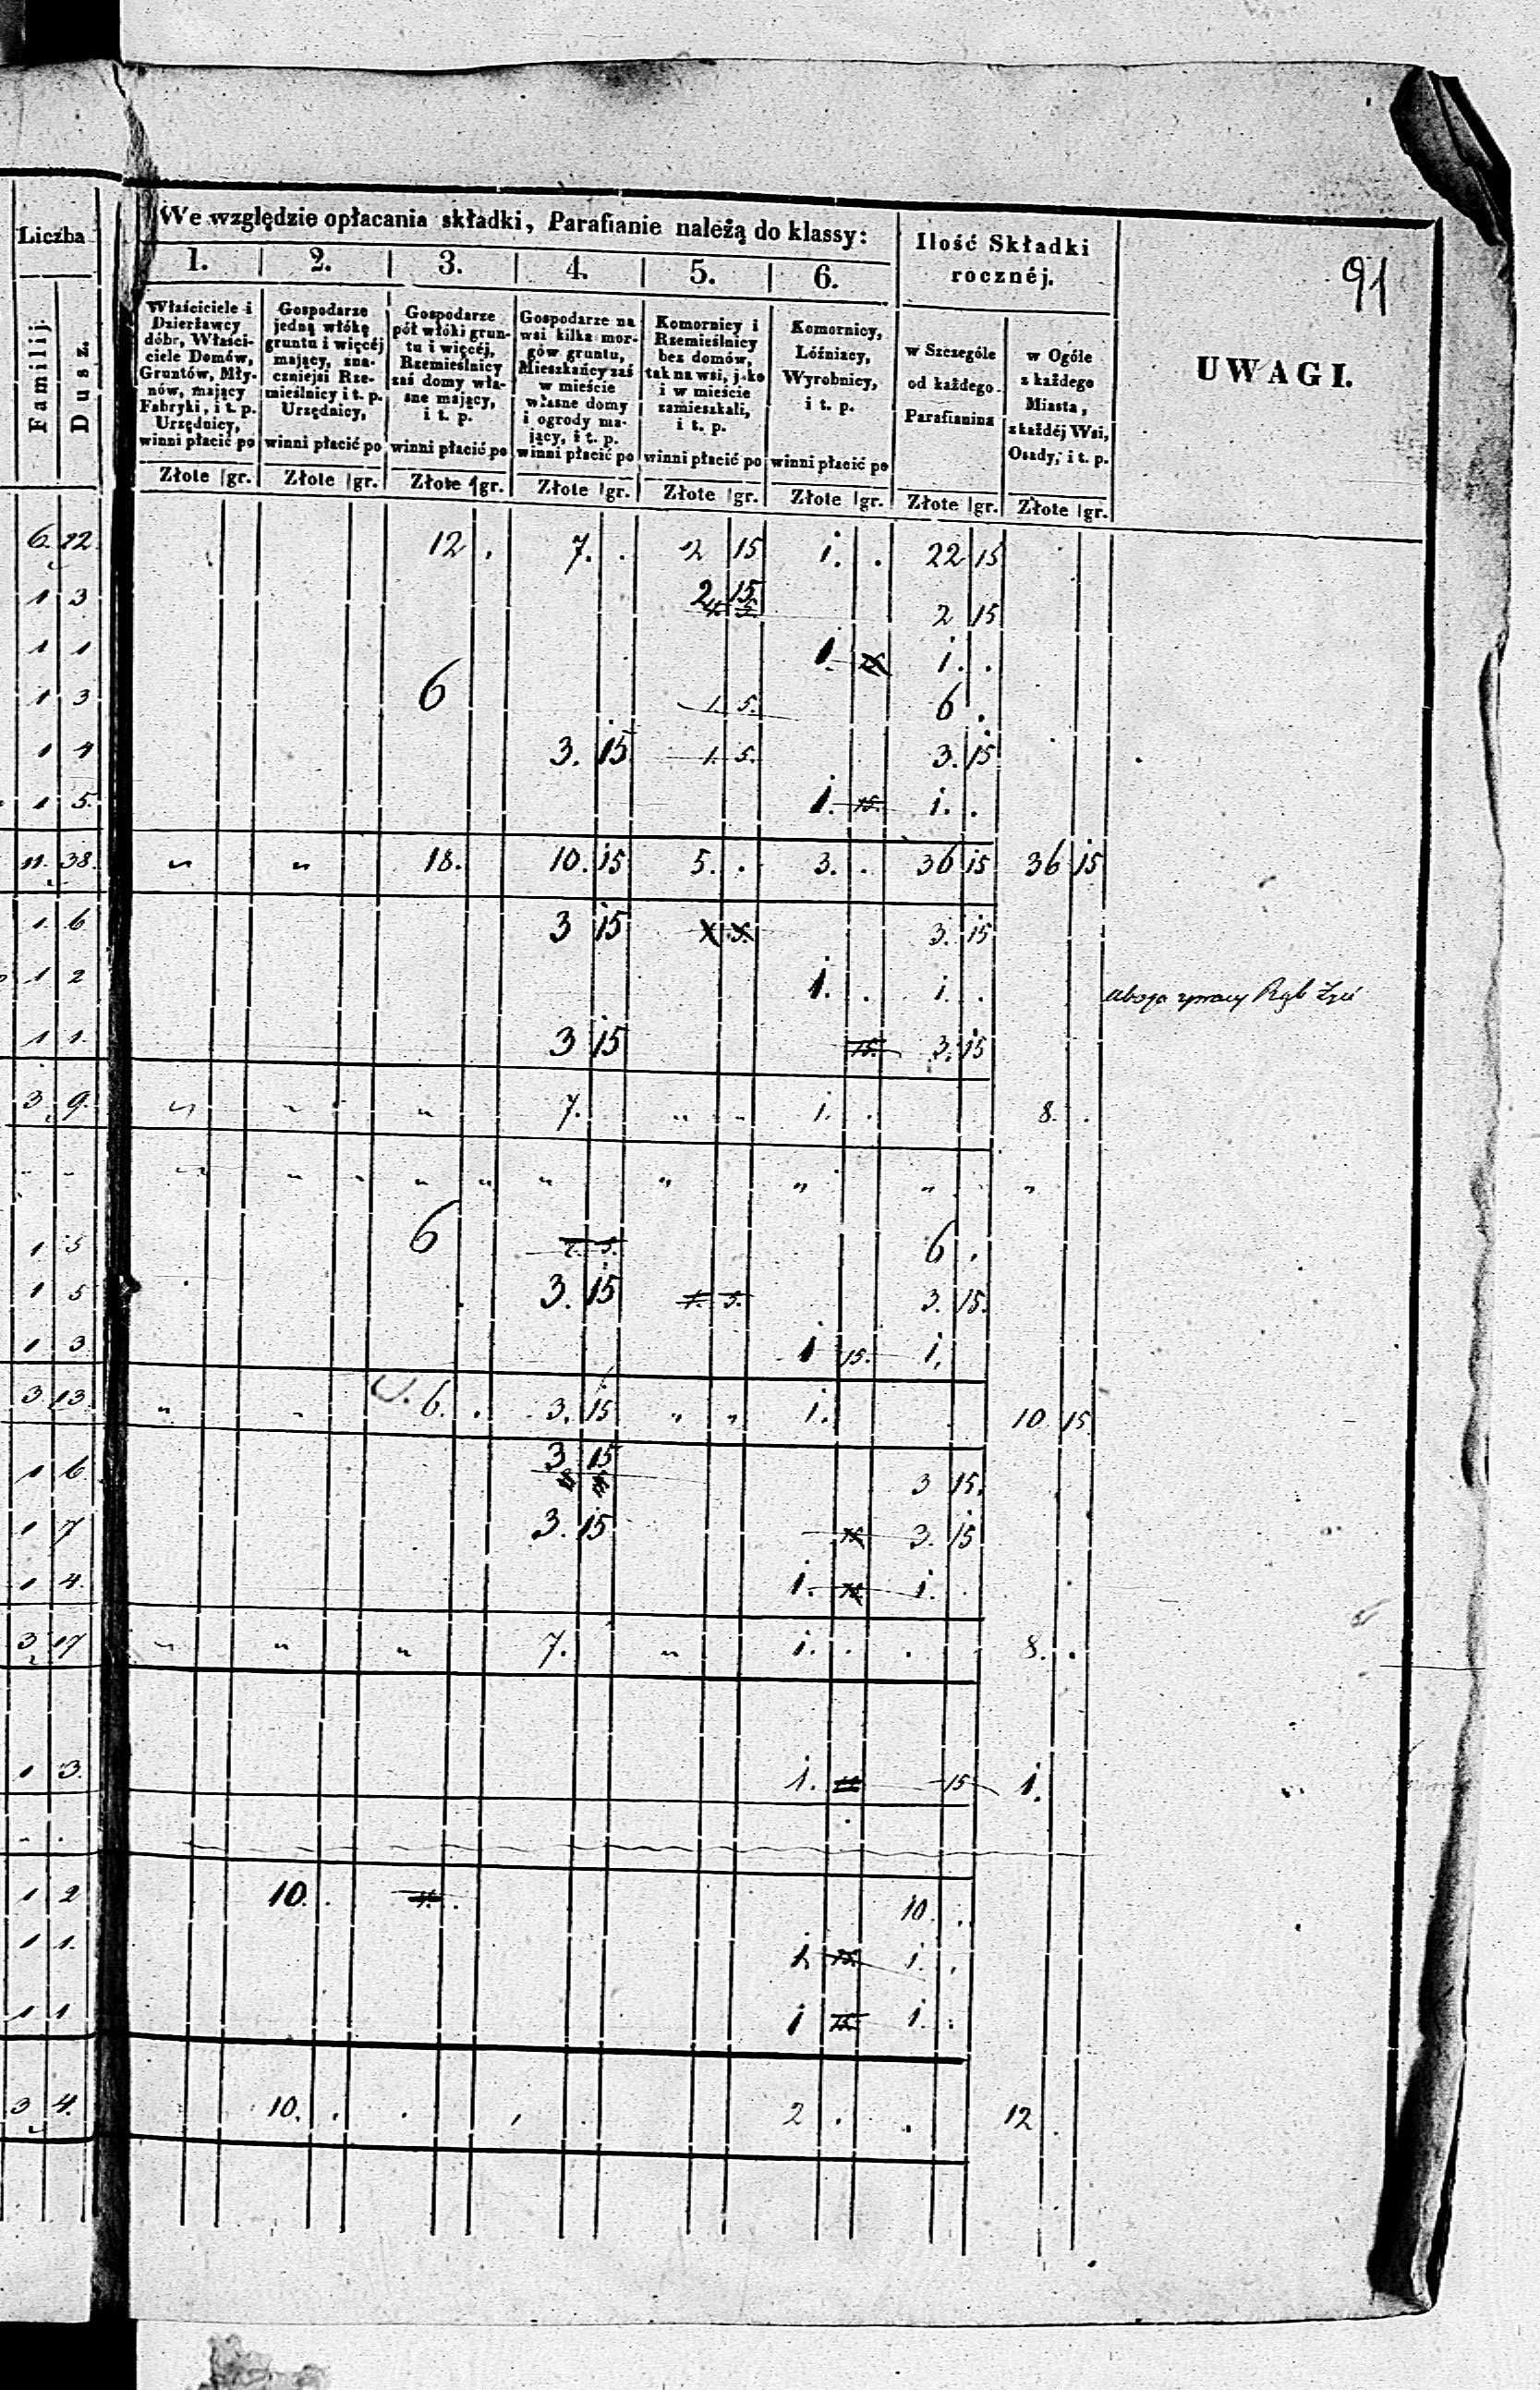 91
Liczba
We względzie opłacania składki, Parafianie należą do klassy:
Ilość Składki rocznéj.
UWAGI.
1. 2. 3. 4. 5. 6.
Familij.
Dusz.
Właściciele i Dzierżawcy dóbr, Właściciele Domów, Gruntów, Młynów, mający Fabryki, i t. p. Urzędnicy, winni płacić po
Gospodarze jedną włókę gruntu i więcéj mający, znaczniejsi Rzemieślnicy i t. p. Urzędnicy, winni płacić po
Gospodarze pół włóki gruntu i więcéj, Rzemieślnicy zaś domy własne mający, i t. p. winni płacić po
Gospodarze na wsi kilka morgów gruntu, Mieszkańcy zaś w mieście własne domy i ogrody mający, i t. p. winni płacić po
Komornicy i Rzemieślnicy bez domów, tak na wsi, jako i w mieście zamieszkali, i t. p. winni płacić po
Komornicy, Lóźniacy, Wyrobnicy, i t. p. winni płacić po
w Szczególe od każdego Parafianina
w Ogóle z każdego Miasta, z każdéj Wsi, Osady, i t. p.
Złote gr. Złote gr. Złote gr. Złote gr. Złote gr. Złote gr. Złote gr. Złote gr.
6. 22. 12 . 7. . 2 15 1. . 22 15
1 3 2 15 2 15
1 1 1. 1. .
1 3 6 1. 5. 6 .
1 4 3. 15 1. 5. 3. 15
1 5. 1. 15. 1. .
11. 38. " " 18. 10. 15 5. . 3. . 36 15 36 15
1. 6 3 15 3. 15
1 2 1. . 1. .
1 1. 3 15 15. 3. 15
3. 9. " " " 7. " " 1. . 8. .
" " " " " " " " " " "
1 5 6 6 .
1 5 3. 15 1. 5. 3. 15.
1 3 1 15. 1.
3 13. " " 6. . 3. 15 " " 1. 10 15.
1 6 3 15 3 15.
1 7 3. 15 3. 15
1 4. 1. 1. .
3 17 " " " 7. " 1. . . 8. .
1 3. 1. 15 1.
1 2 10. . 10. .
1 1. 1 15. 1. .
1 1 1 15 1. .
3 4. 10. . . 2 . . 12 .